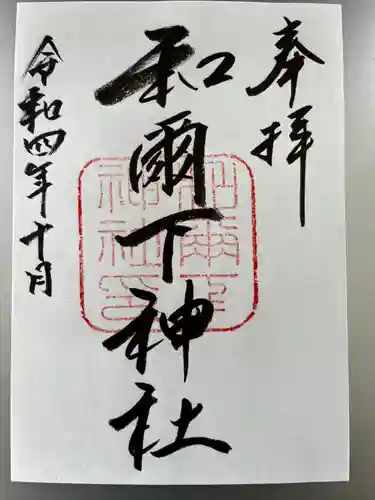 奉拝
和爾下神社
和爾下神社印
令和四年十月